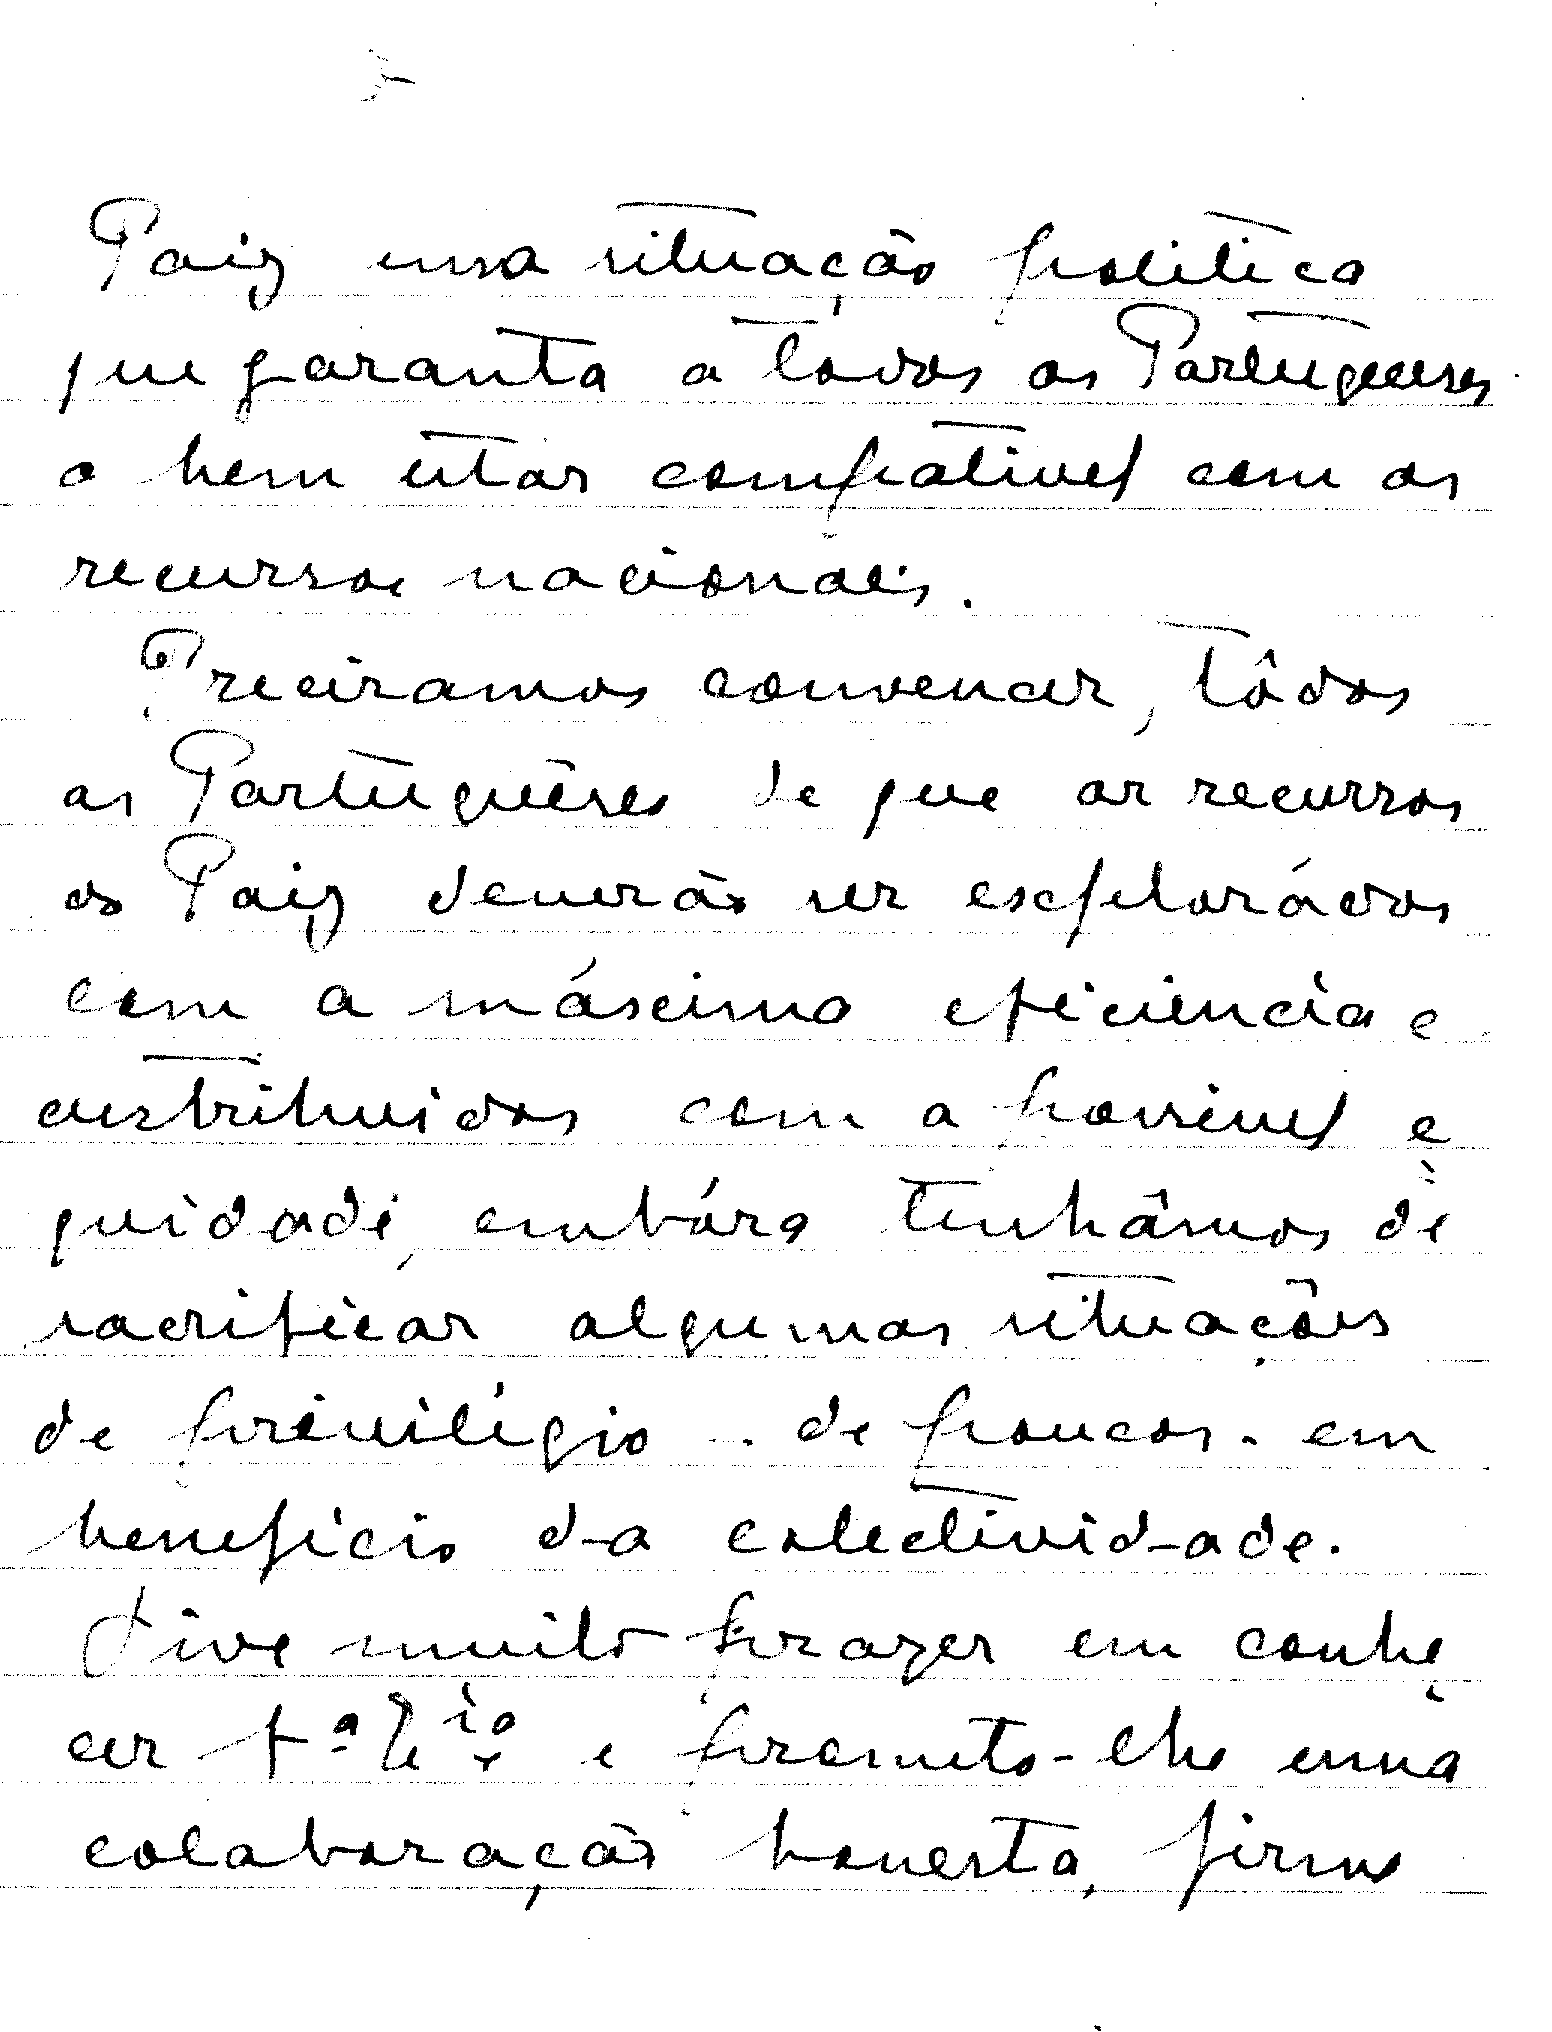 Paiz uma situação politica
que garanta a todos os Portugueses
o bem estar compativel com os
recursos nacionais.
Precisamos convencer, tôdos
os Portuguêses de que os recursos
do Paiz deverão ser explorádos
com a máxima eficiencia e
distribuidos com a possivel e
quidade, embóra tenhâmos de
sacrificar algumas situações
de privilégio - de poucos - em
benefício da colectividade.
Tive muito prazer em conhe
cer V.ª Ex.cia e prometo-lhe uma
colaboração honesta, firme